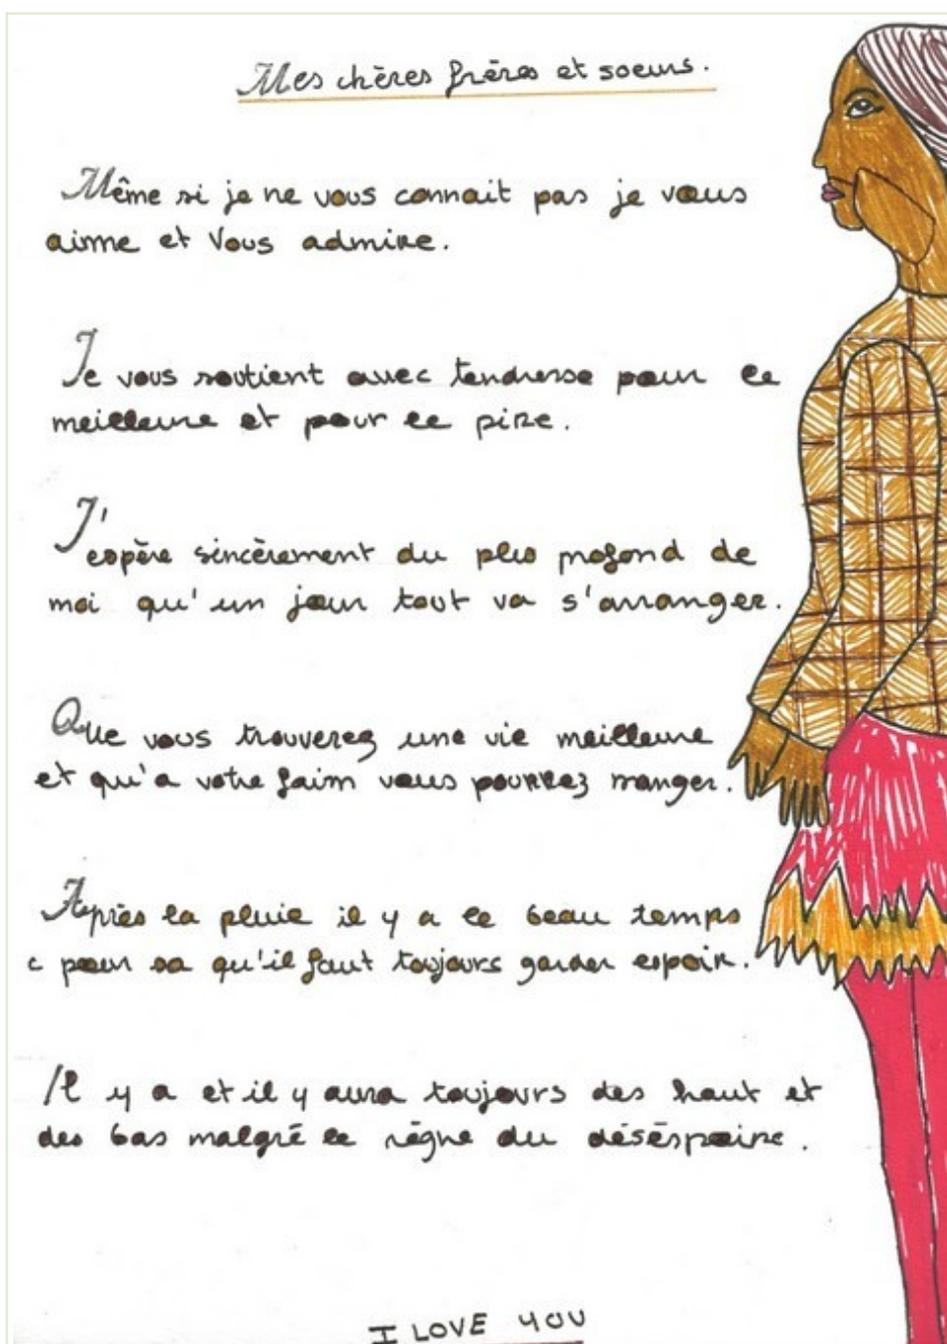 Mes chères frères et soeurs.
Même si je ne vous connait pas je vous
aime et Vous admire.
Je vous soutient avec tendresse pour le
meilleure et pour le pire.
J'espère sincèrement du plus profond de
moi qu'un jour tout va s'arranger.
Que vous trouverez une vie meilleure
et qu'a votre faim vous pourrez manger.
Après la pluie il y a le beau temps
c pour sa qu'il faut toujours garder espoir.
Il y a et il y aura toujours des haut et
des bas malgré le règne du déséspoire.
I LOVE YOU